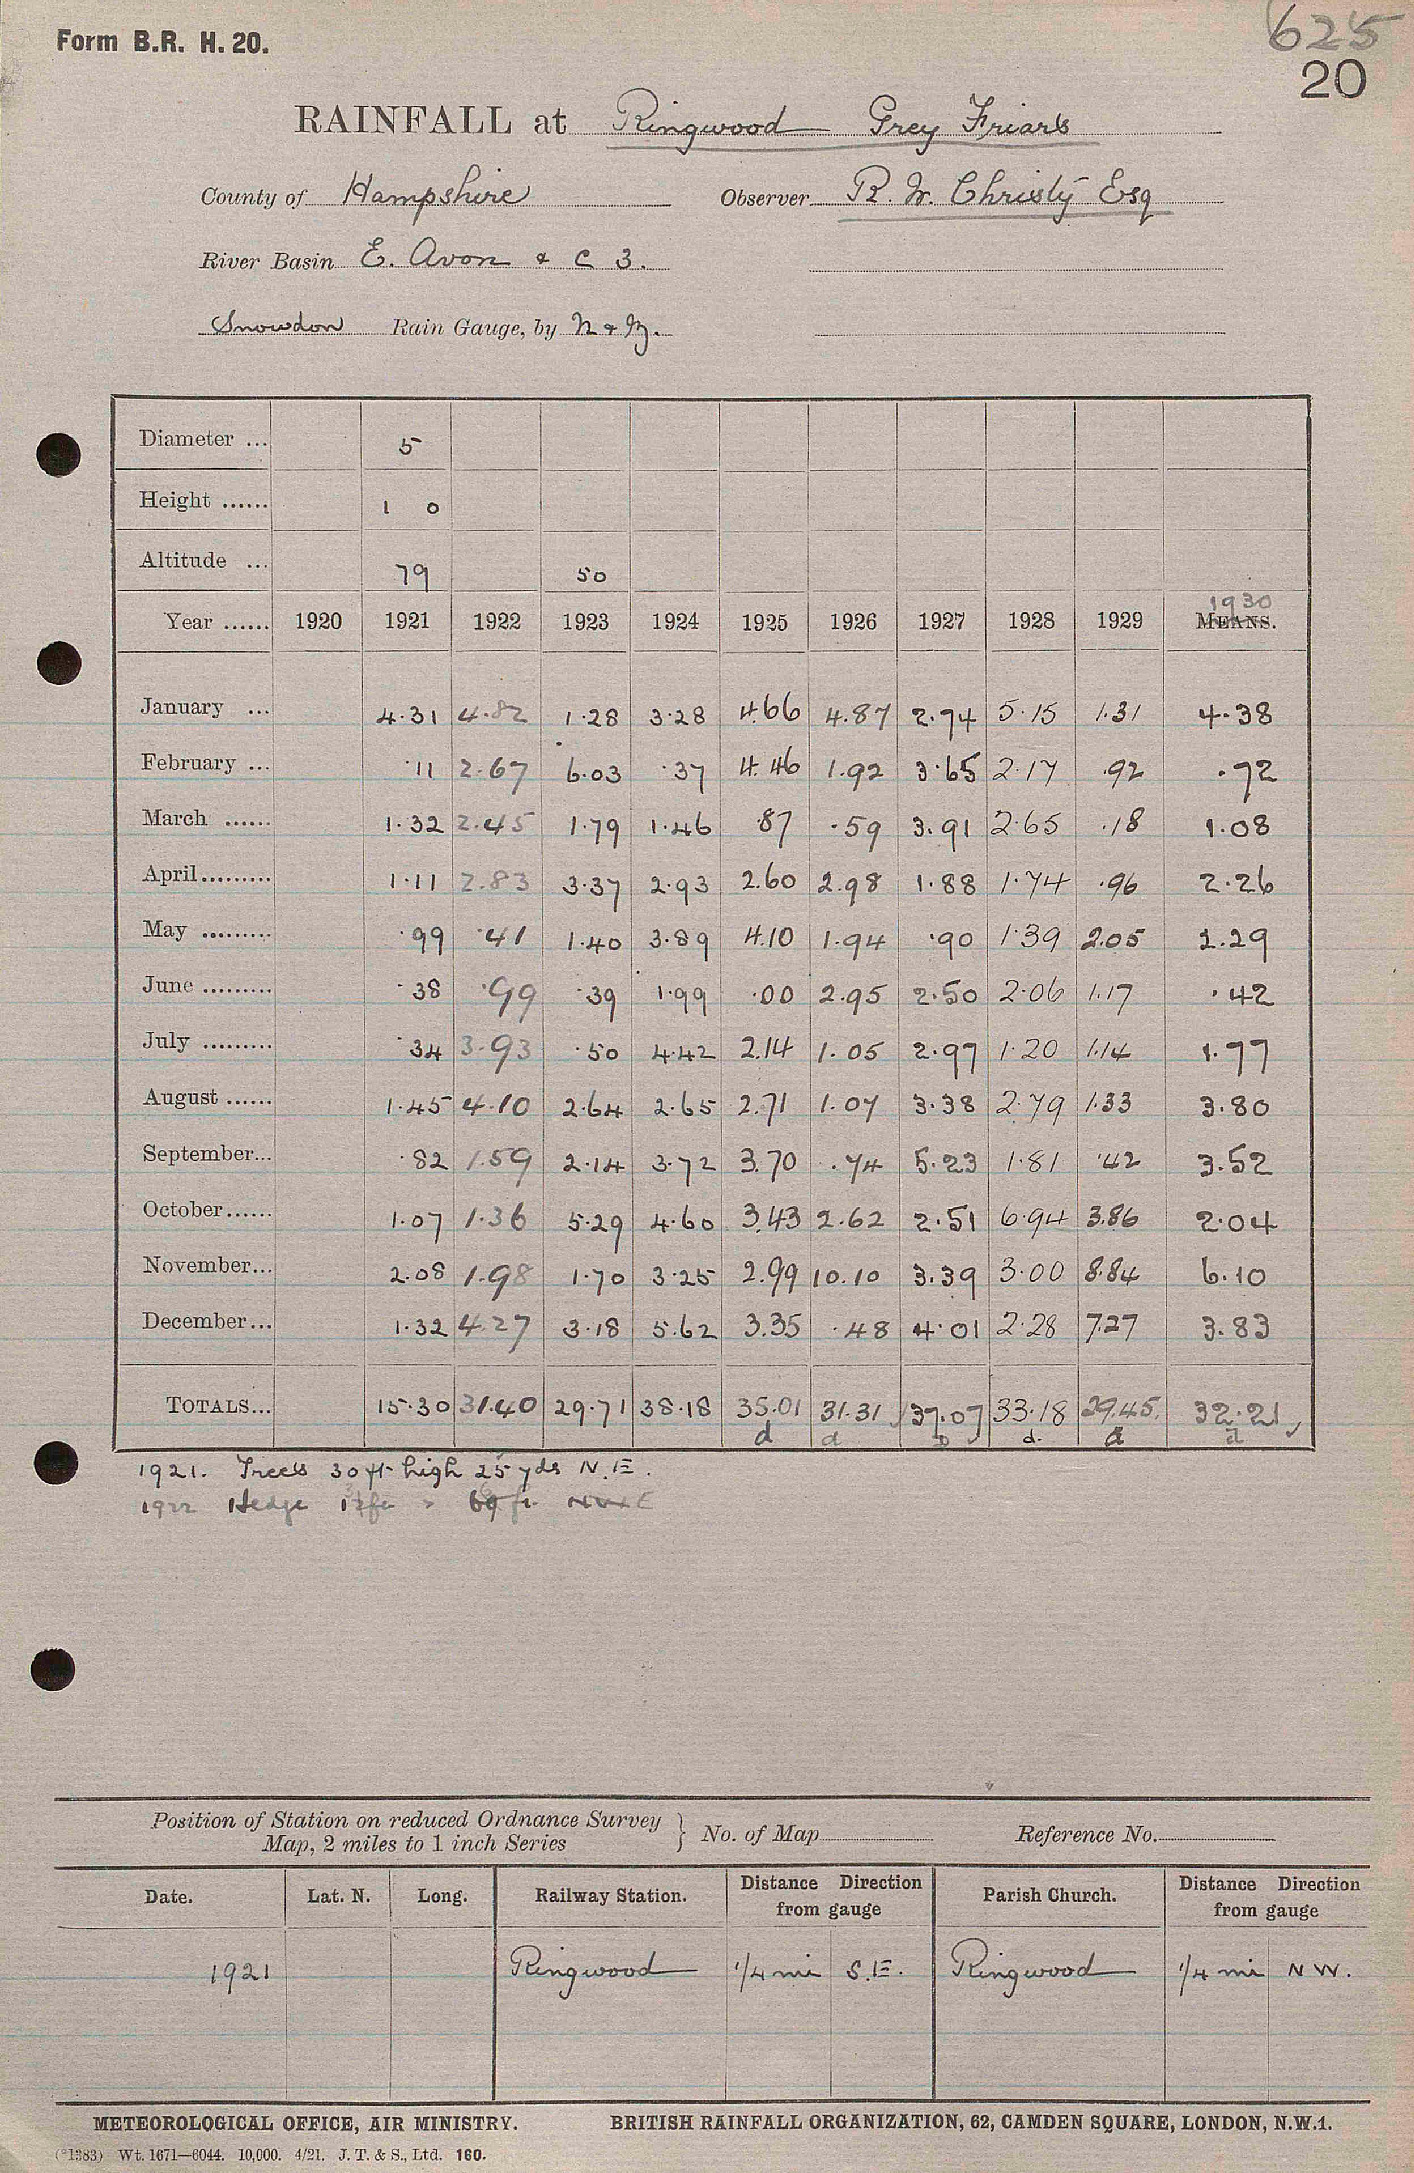 625
Form B.R. H. 20.
20
RAINFALL at Ringwood Grey Friars
County of Hampshire Observer R. W. Christy Esq
River Basin E. Avon & C 3.
Snowdon Rain Gauge, by N & Z.
Diameter ... 5
Height ...... 1 0
Altitude ... 79 50
1930
Year ...... 1920 1921 1922 1923 1924 1925 1926 1927 1928 1929 MEANS.
January ... 4.31 4.82 1.28 3.28 4.66 4.87 2.74 5.15 1.31 4.38
February ... .11 2.67 6.03 .37 4.46 1.92 3.65 2.17 .92 .72
March ...... 1.32 2.45 1.79 1.46 .87 .59 3.91 2.65 .18 1.08
April......... 1.11 2.83 3.37 2.93 2.60 2.98 1.88 1.74 .96 2.26
May ......... .99 .41 1.40 3.89 4.10 1.94 .90 1.39 2.05 2.29
June ......... .38 .99 .39 1.99 .00 2.95 2.50 2.06 1.17 .42
July ......... .34 3.93 .50 4.42 2.14 1.05 2.97 1.20 1.14 1.77
August ...... 1.45 4.10 2.64 2.65 2.71 1.07 3.38 2.79 1.33 3.80
September... .82 1.59 2.14 3.72 3.70 .74 5.23 1.81 .42 3.52
October...... 1.07 1.36 5.29 4.60 3.43 2.62 2.51 6.94 3.86 2.04
November... 2.08 1.98 1.70 3.25 2.99 10.10 3.39 3.00 8.84 6.10
December... 1.32 4.27 3.18 5.62 3.35 .48 4.01 2.28 7.27 3.83
TOTALS... 15.30 31.40 29.71 38.18 35.01 31.31 37.07 33.18 29.45 32.21
d d D d. d d
1921. Trees 30 ft high 25 yds N.E.
1922 Hedge
Position of Station on reduced Ordnance Survey
Map, 2 miles to 1 inch Series } No. of Map Reference No.
Date. Lat. N. Long. Railway Station. Distance Direction from gauge Parish Church. Distance Direction from gauge
1921 Ringwood 1/4 mi S.E. Ringwood 1/4 mi N W.
METEOROLOGICAL OFFICE, AIR MINISTRY. BRITISH RAINFALL ORGANIZATION, 62, CAMDEN SQUARE, LONDON, N.W.1.
(*1383) Wt. 1671—6044. 10,000. 4/21. J. T. & S., Ltd. 160.